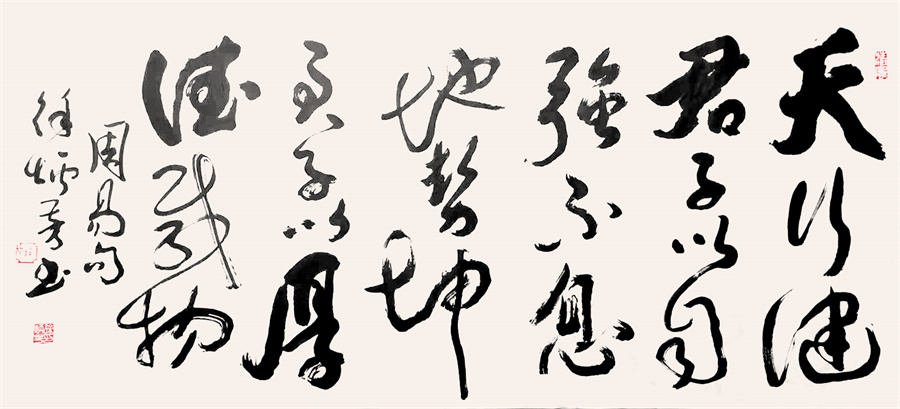 天行健
君子以自
強不息
地勢坤
君子以厚
德載物
周易句
徐炳芳书